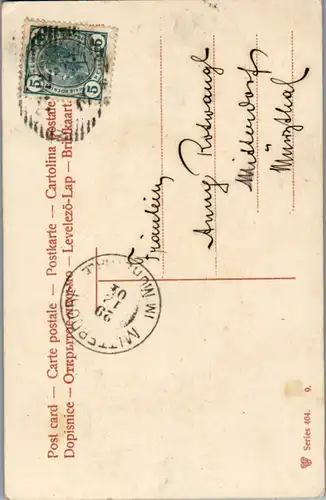 Post card — Carte postale — Postkarte — Cartolina postale
Dopisnice — Открытое письмо — Levelező-Lap — Brefkaart
5 5
Fräulein
Anny Rotwangl
Mitterdorf
Mürzthal
MITTERDORF IM MÜRZTHALE
29
04
Series 404. 9.